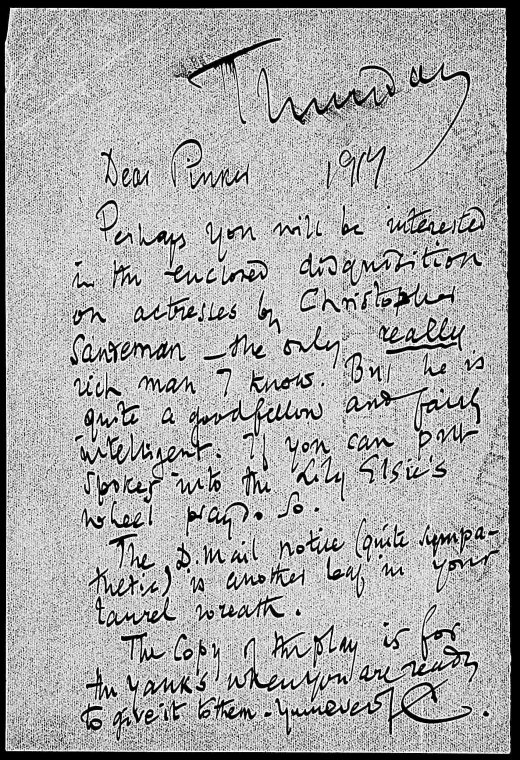 Thursday
Dear Pinker 1917
Perhaps you will be interested
in the enclosed disquisition
on actresses by Christopher
Sandeman – the only really
rich man I know. But he is
quite a goodfellow and fairly
intelligent. If you can put
spokes into the Lily Elsie's
wheel pray do so.
The D. Mail notice (quite sympa-
thetic) is another leaf in your
laurel wreath.
The Copy of the play is for
the Yanks when you are ready
to give it to them. Yours ever JC.